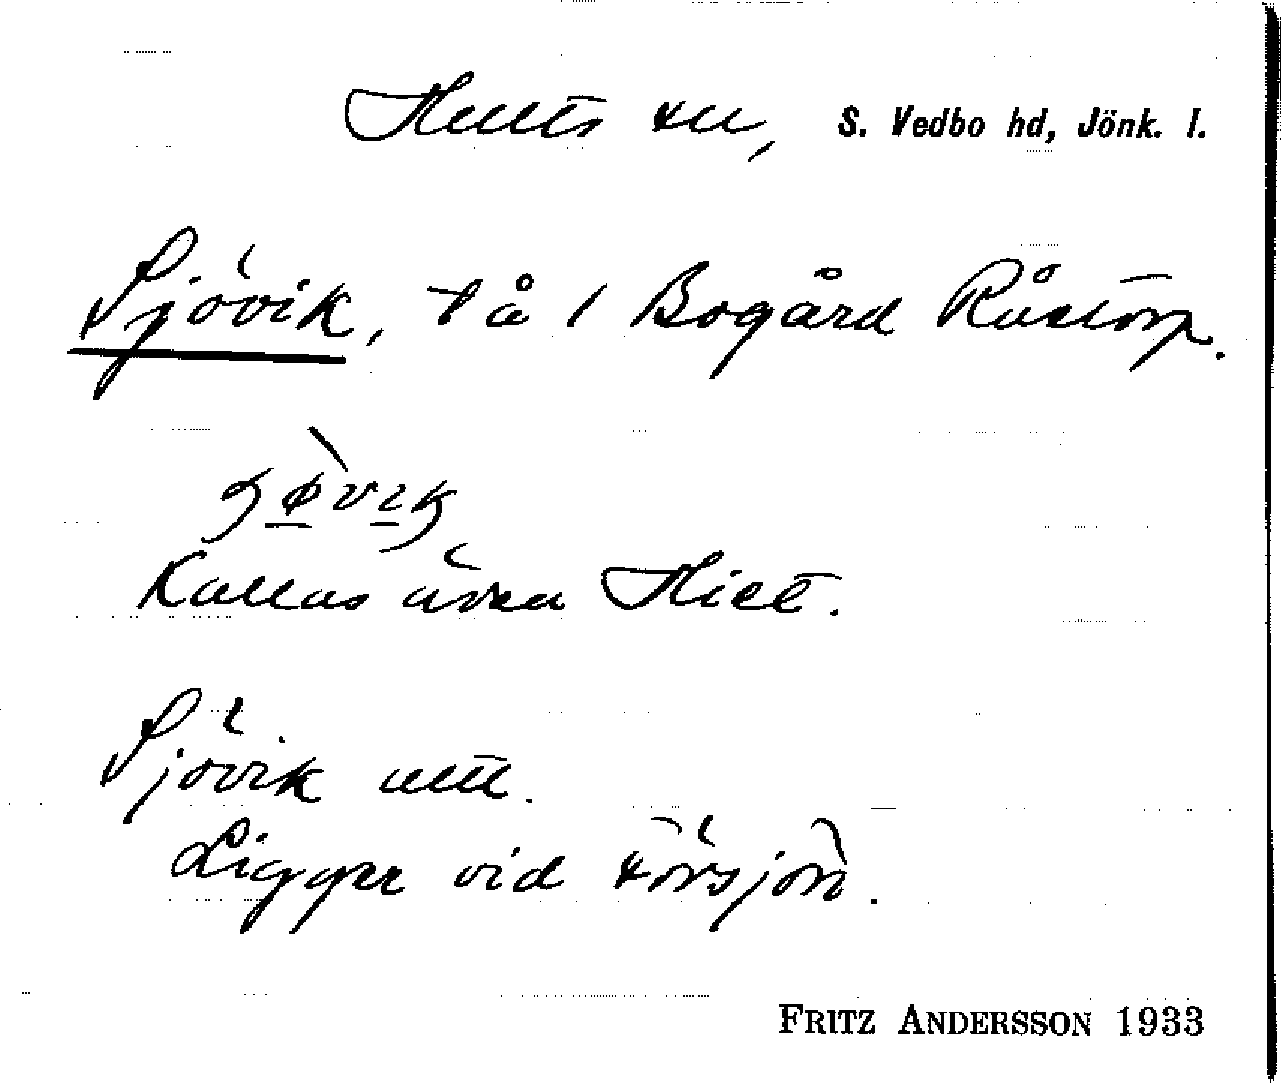 Hults sn, S. Vedbo hd, Jönk. l.
Sjövik, tå / Bogård Råstorp.
Kallas även
Sjövik utt.
Ligger vid Försjön.
FRITZ ANDERSSON 1933